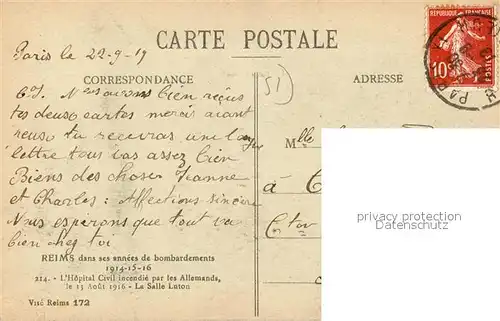 Paris le 22-9-19
CARTE POSTALE
RÉPUBLIQUE FRANÇAISE
10
POSTES
PARIS
CORRESPONDANCE
ADRESSE
51
Nous avons bien reçus
tes deux cartes merci avant
tu recevras une longue
lettre tous vas assez bien
Biens des choses Jeanne
et Charles: Affections sincère
Nous espérons que tout va
bien chez toi
Mlle
à C
Cton
privacy protection
Datenschutz
REIMS dans ses années de bombardements
1914-15-16
214. - L'Hôpital Civil incendié par les Allemands,
le 13 Août 1916 - La Salle Luton
Visé Reims 172